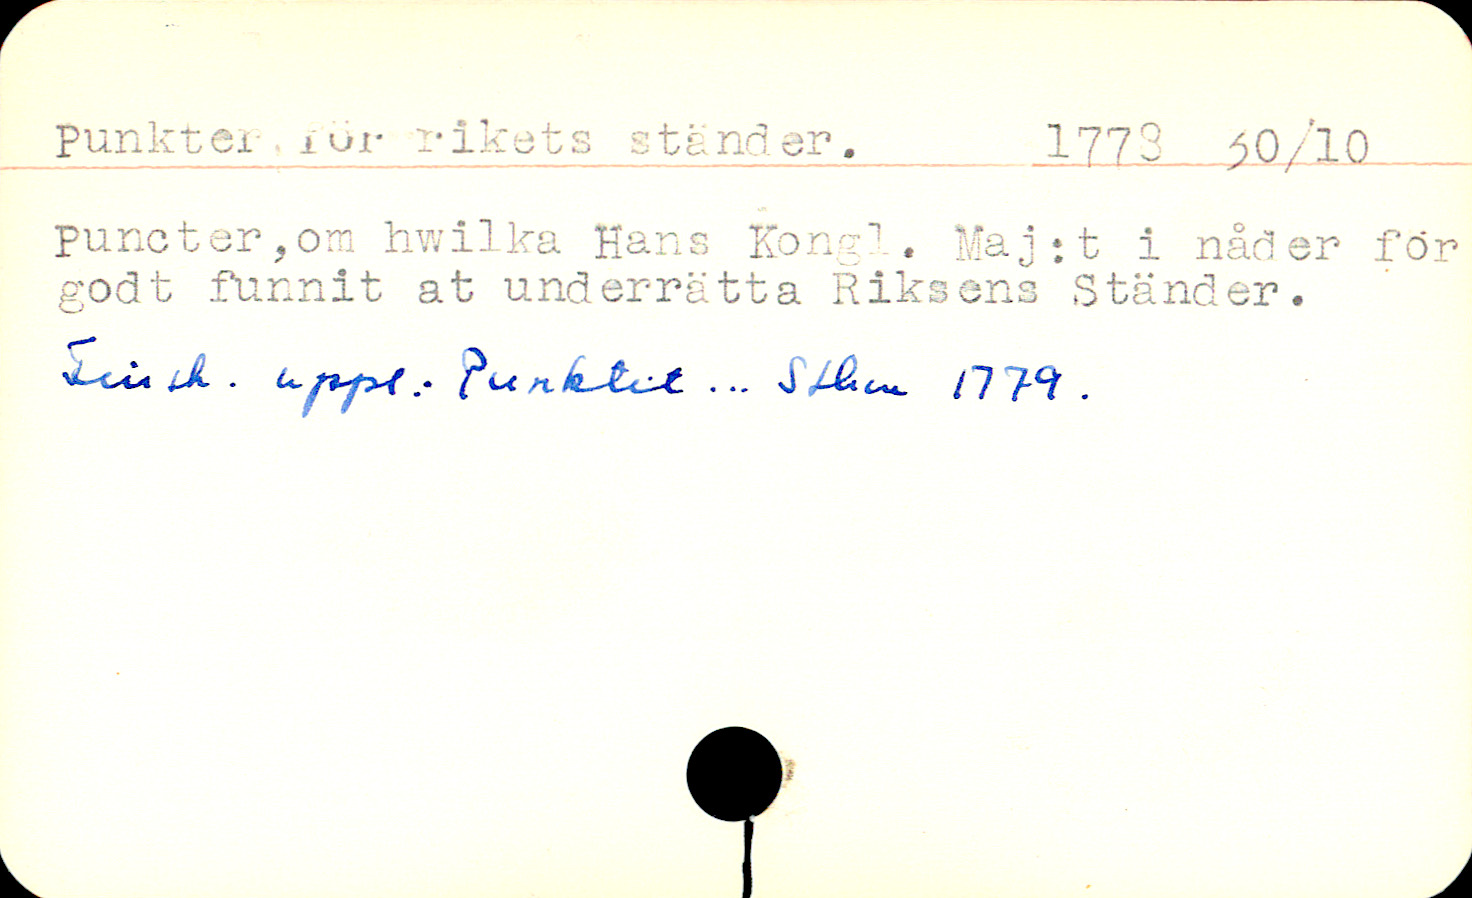 Punkter för rikets ständer. 1778 30/10
Puncter,om hwilka Hans Kongl. Maj:t i nåder för
godt funnit at underrätta Riksens Ständer.
Finsk. uppl.: Punktit... Sthm 1779.